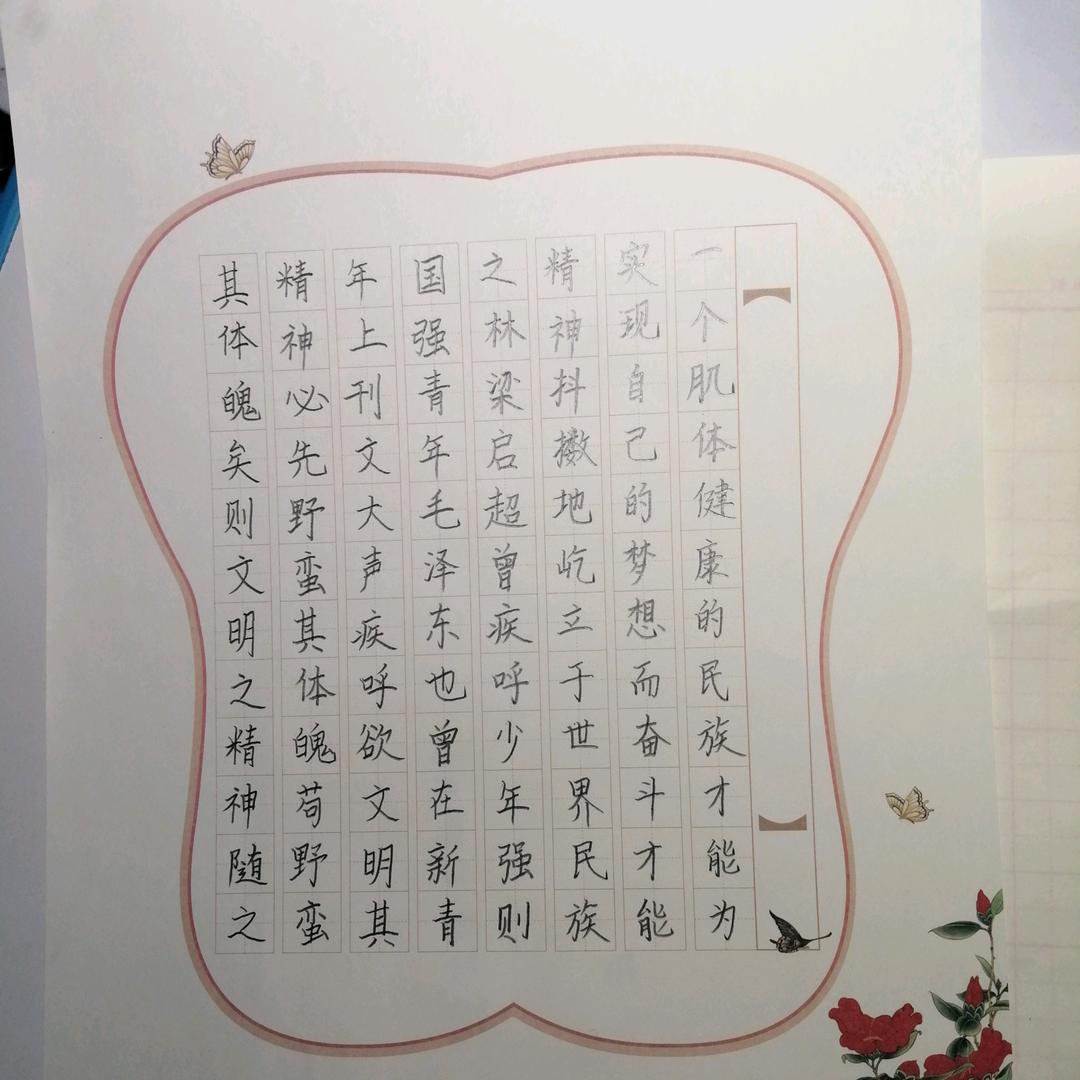 一个肌体健康的民族才能为
实现自己的梦想而奋斗才能
精神抖擞地屹立于世界民族
之林梁启超曾疾呼少年强则
国强青年毛泽东也曾在新青
年上刊文大声疾呼欲文明其
精神必先野蛮其体魄苟野蛮
其体魄矣则文明之精神随之